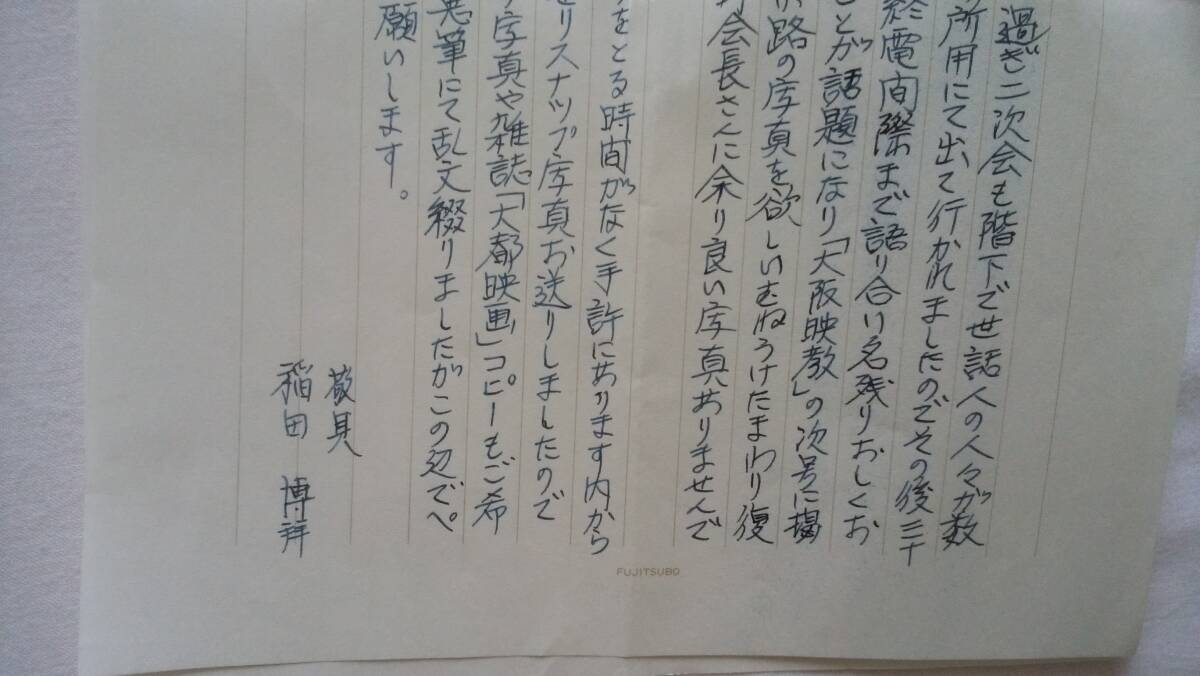 過ぎ二次会も階下で世話人の人々が数
所用にて出て行かれましたのでその後三十
終電間際まで語り合い名残りおしくお
とが話題になり「大阪映教」の次号に掲
路の写真を欲しいむねうけたまわり復
会長さんに余り良い写真ありませんで
をとる時間がなく手許にあります内から
せリスナップ写真お送りしましたので
写真や雑誌「大都映画」コピーもご希
悪筆にて乱文綴りましたがこの辺でペ
願いします。
敬具
稲田 博拝
FUJITSUBO